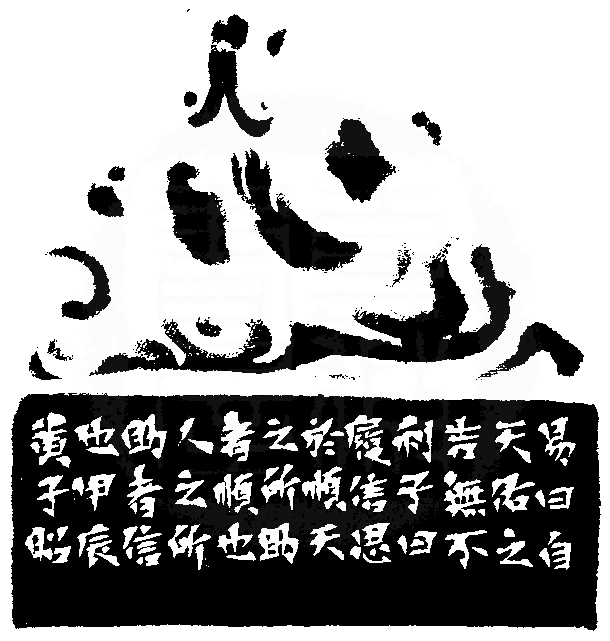 易曰自
天佑之
吉無不
利子曰
履信思
於順天
之所助
者順也
人之所
助者信
也甲辰
黃子昭